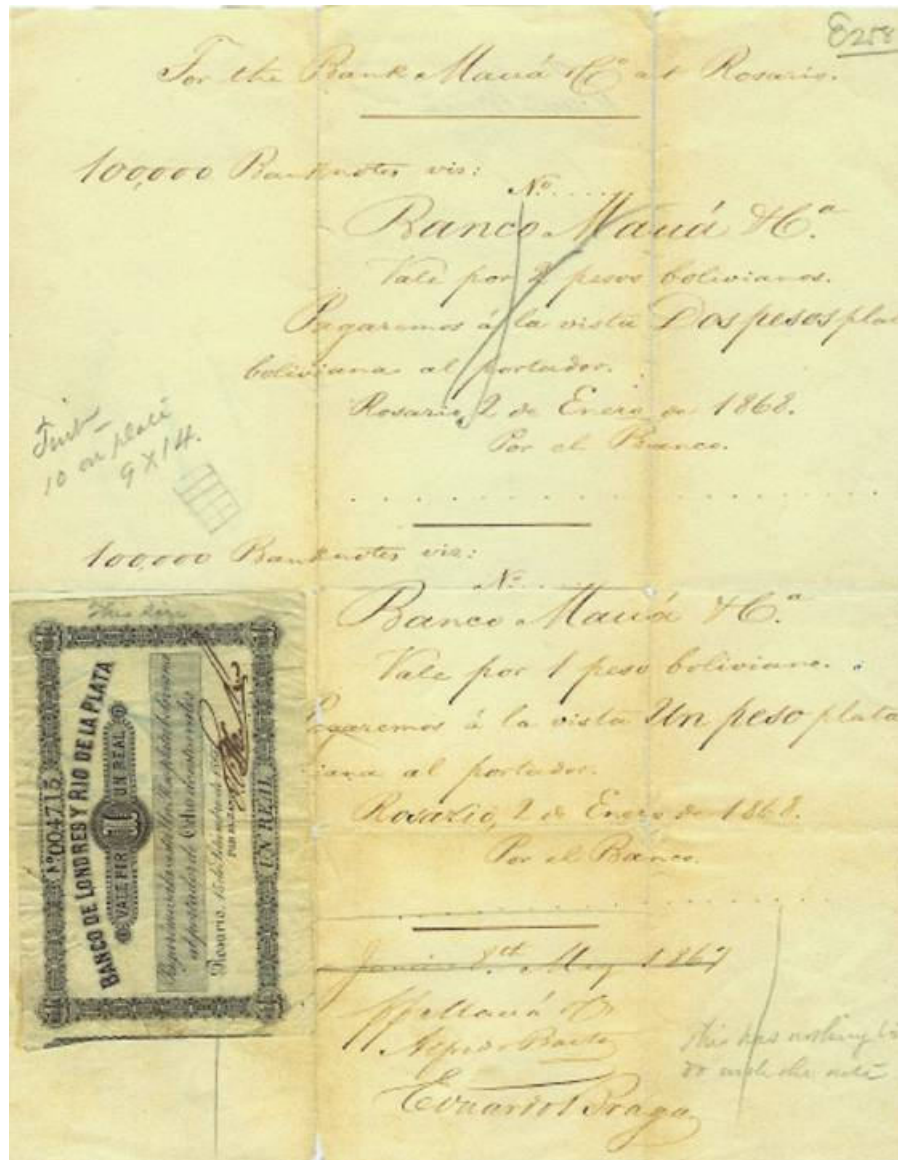 8258
For the Bank Mauá & Cº at Rosario.
100,000 Banknotes viz:
Nº.....
Banco Mauá & Cª.
Vale por 2 pesos bolivianos.
Pagaremos á la vista Dos pesos plat
boliviana al portador.
Rosario, 2 de Enero de 1868.
Por el Banco.
10 on plate
9 X 14.
100,000 Banknotes viz:
Nº.....
Banco Mauá & Cª.
Vale por 1 peso boliviano.
Pagaremos á la vista Un peso plata
iana al portador.
Rosario, 2 de Enero de 1868.
Por el Banco.
This size
Nº 004715
BANCO DE LONDRES Y RIO DE LA PLATA
VALE PER 1 UN REAL
al portador de Ocho de estos vales
Rosario, 15 de Setiembre de
UN REAL
8th May 1867
ppMauá & Co
Eduardo Braga
this has nothing to
do with the note